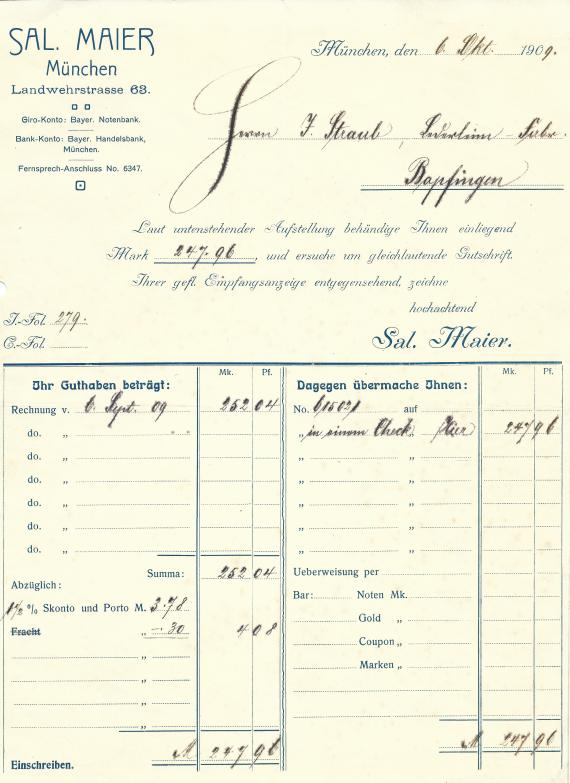 SAL. MAIER
München
Landwehrstrasse 63.
Giro-Konto: Bayer. Notenbank.
Bank-Konto: Bayer. Handelsbank,
München.
Fernsprech-Anschluss No. 6347.
München, den 6. Okt. 1909.
Herrn J. Straub, Lederleim-Fabr.
Bopfingen
Laut untenstehender Aufstellung behändige Ihnen einliegend
Mark 247.96, und ersuche um gleichlautende Gutschrift.
Ihrer gefl. Empfangsanzeige entgegensehend, zeichne
hochachtend
Sal. Maier.
J.-Fol. 279.
C.-Fol.
Ihr Guthaben beträgt: Mk. Pf.
Rechnung v. 6 Sept. 09 252 04
do. „ " "
do. „
do. „
do. „
do. „
do. „
Summa: 252 04
Abzüglich:
1½ % Skonto und Porto M. 3.78
Fracht „ -.30 4 08
„
„
„
M 247 96
Einschreiben.
Dagegen übermache Ihnen: Mk. Pf.
No. 615021 auf
„ in einem Check „ Hier 247 96
„ „
„ „
„ „
„ „
„ „
Ueberweisung per
Bar: Noten Mk.
Gold „
Coupon „
Marken „
M 247 96